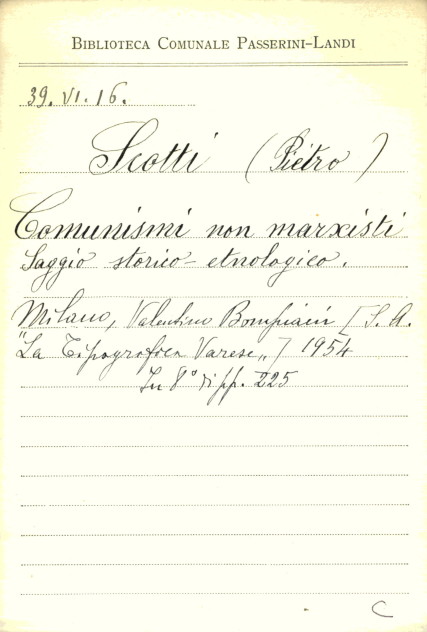 BIBLIOTECA COMUNALE PASSERINI-LANDI
39. VI. 16.
Scotti (Pietro)
Comunismi non marxisti
Saggio storico-etnologico.
Milano, Valentino Bompiani [S. A.
"La Tipografica Varese„] 1954
In 8° di pp. 225
C